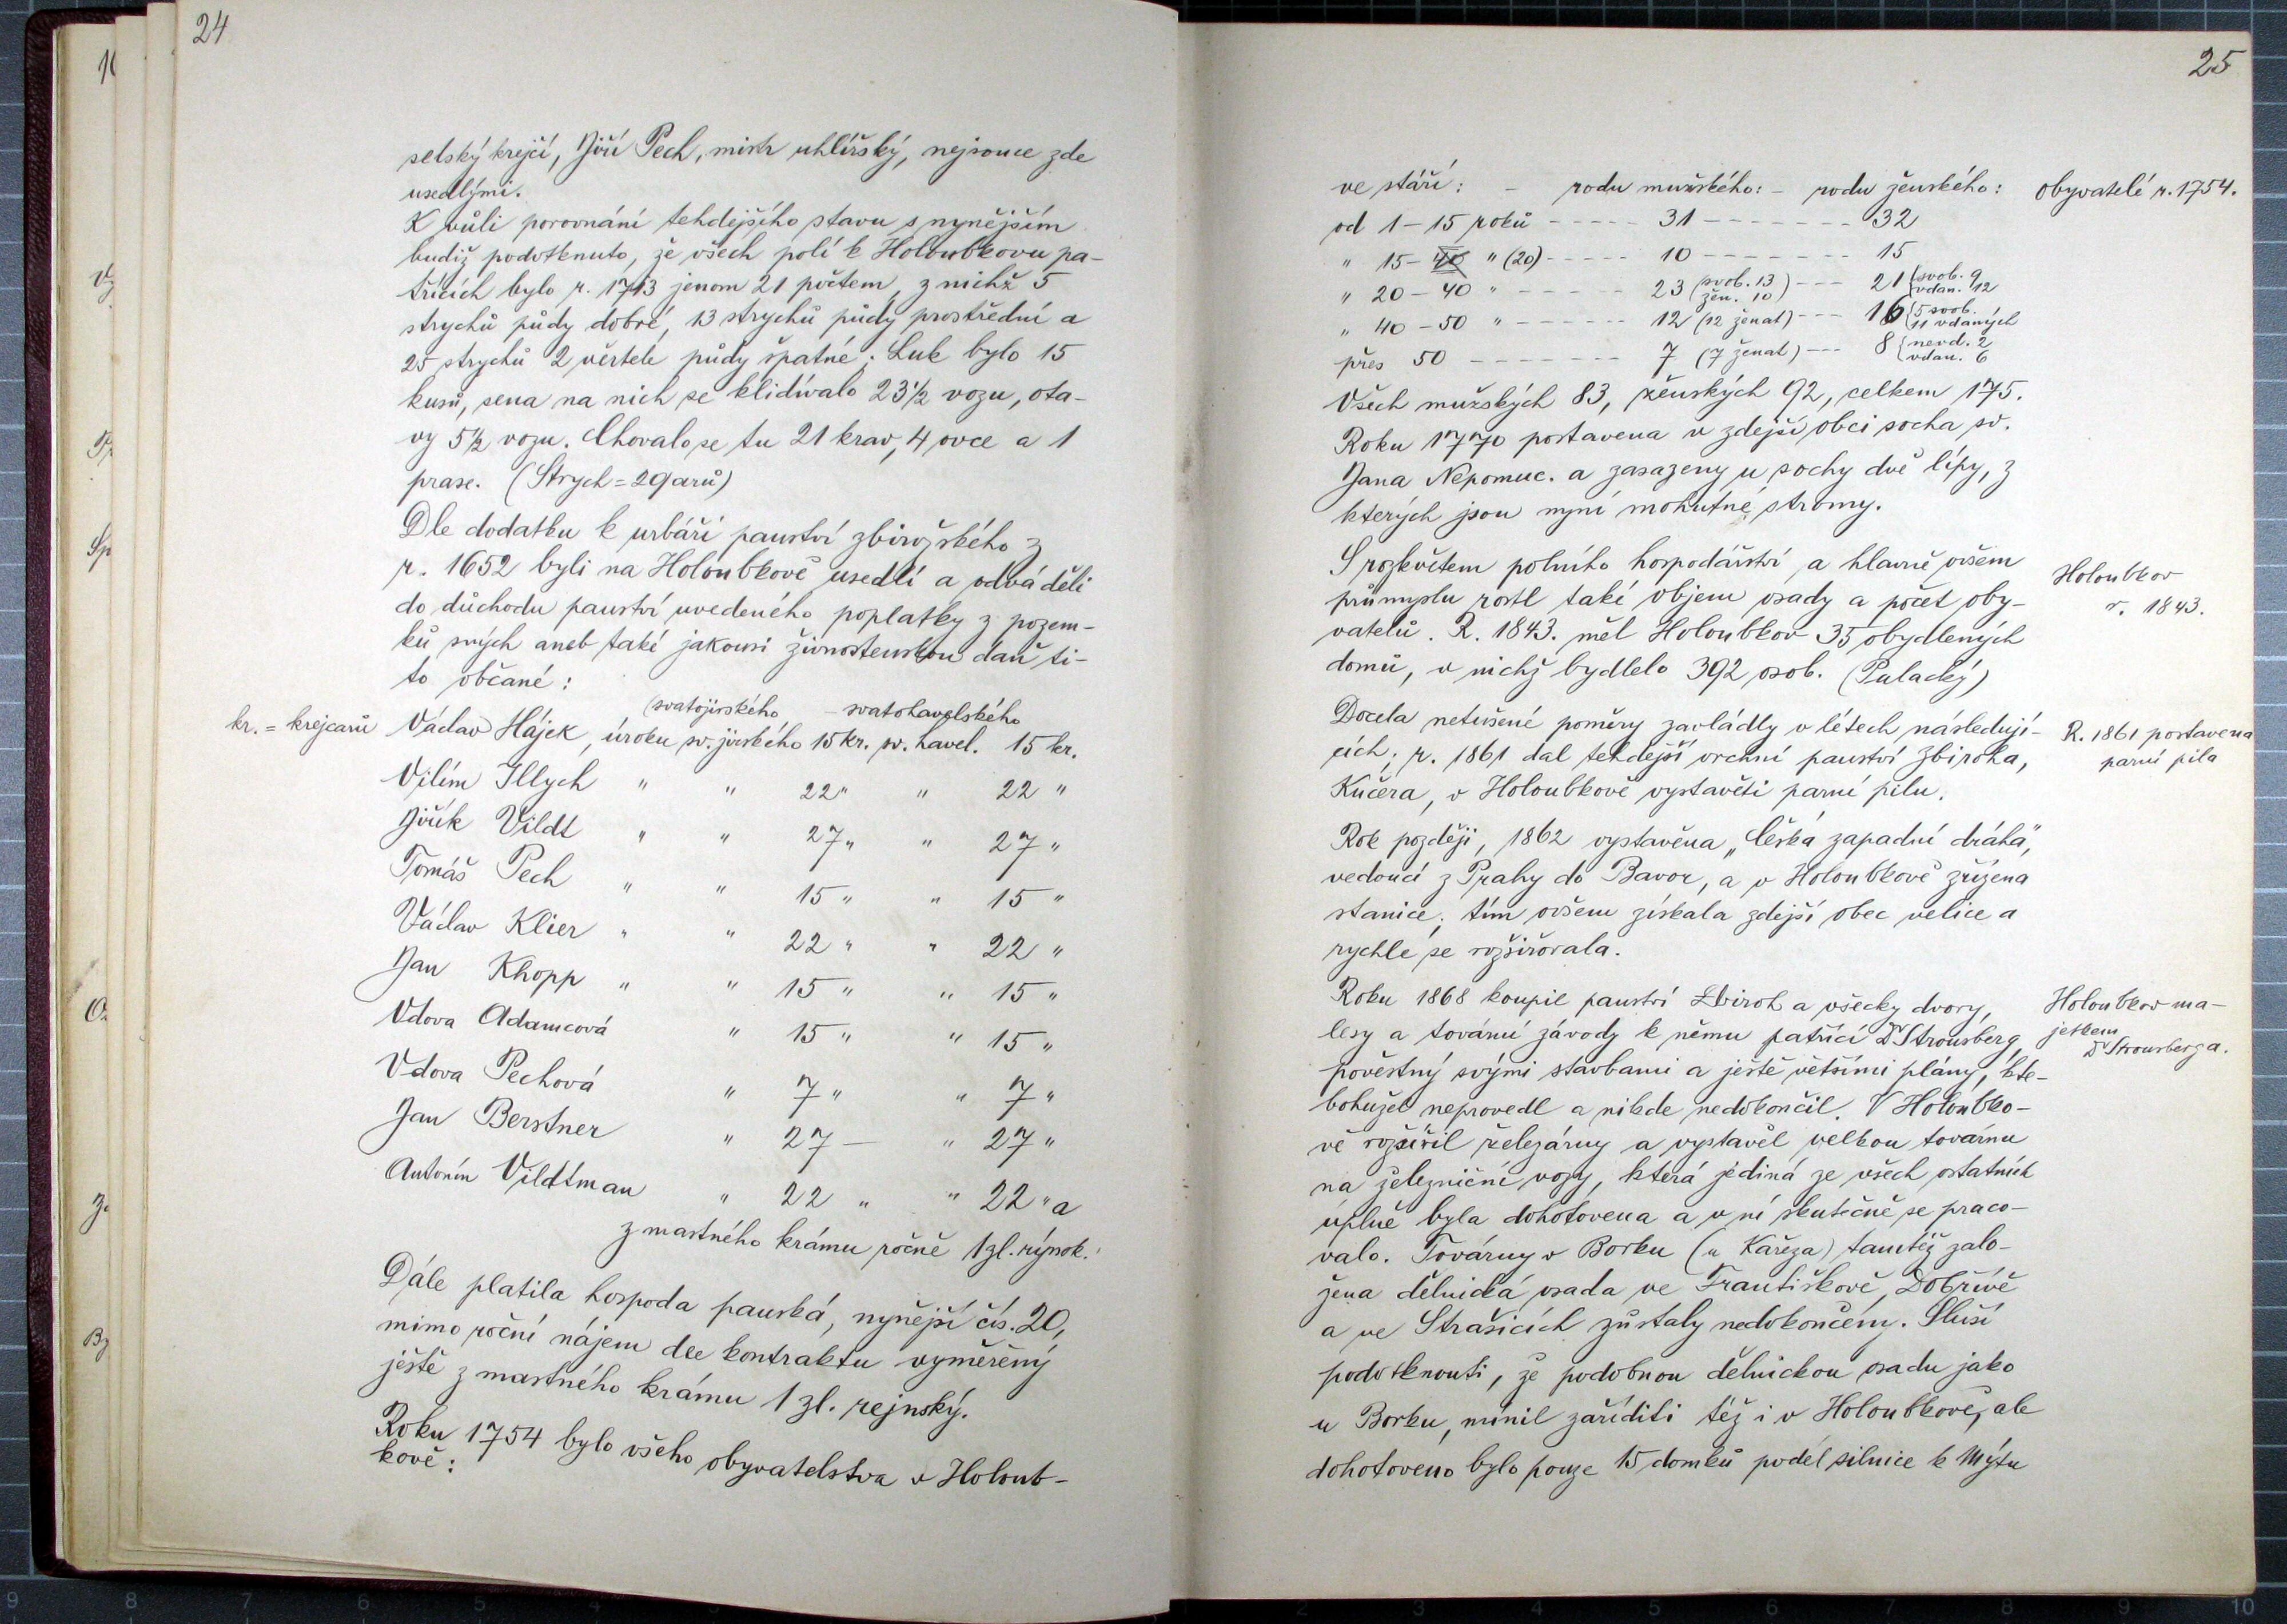 24
selský krejčí, Jiří Pech, mistr uhlířský, nejsouce zde
usedlými.
K vůli porovnání tehdejšího stavu s nynějším
budiž podotknuto, že všech polí k Holoubkovu pa-
třících bylo r. 1713 jenom 21 počtem, z nichž 5
strychů půdy dobré, 13 strychů půdy prostřední a
25 strychů 2 věrtele půdy špatné. Luk bylo 15
kusů, sena na nich se klidívalo 23½ vozu, ota-
vy 5½ vozu. Chovalo se tu 21 krav, 4 ovce a 1
prase. (Strych = 29 arů)
Dle dodatku k urbáři panství zbirožského z
r. 1652 byli na Holoubkově usedlí a odváděli
do důchodu panství uvedeného poplatky z pozem-
ků svých aneb také jakousi živnostenskou daň ti-
to občané:
(svatojirského – svatohavelského
kr. = krejcarů Václav Hájek, úroku sv. jirského 15 kr. sv. havel. 15 kr.
Vilím Illych " " 22 " " 22 "
Jiřík Vildt " " 27 " " 27 "
Tomáš Pech " " 15 " " 15 "
Václav Klier " " 22 " " 22 "
Jan Khopp " " 15 " " 15 "
Vdova Adamcová " 15 " " 15 "
Vdova Pechová " 7 " " 7 "
Jan Berstner " 27 – " 27 "
Antonín Vildtman " 22 " " 22 " a
z mastného krámu ročně 1 zl. rýnsk.
Dále platila hospoda panská, nynější čís. 20,
mimo roční nájem dle kontraktu vyměřený
ještě z mastného krámu 1 zl. rejnský.
Roku 1754 bylo všeho obyvatelstva v Holoub-
kově:
25
ve stáří: – rodu mužského: – rodu ženského: Obyvatelé r. 1754.
od 1–15 roků ----- 31 ------- 32
" 15–40 " (20) ----- 10 ------- 15
" 20–40 " ----- 23 (svob. 13 žen. 10) --- 21 {svob. 9 vdan. 12
" 40–50 " ------ 12 (12 ženat) --- 16 {5 svob. 11 vdaných
přes 50 ------- 7 (7 ženat) --- 8 {nevd. 2 vdan. 6
Všech mužských 83, ženských 92, celkem 175.
Roku 1770 postavena v zdejší obci socha sv.
Jana Nepomuc. a zasazeny u sochy dvě lípy, z
kterých jsou nyní mohutné stromy.
S rozkvětem polního hospodářství a hlavně ovšem
průmyslu rostl také objem osady a počet oby-
vatelů. R. 1843. měl Holoubkov 35 obydlených
domů, v nichž bydlelo 392 osob. (Palacký)
Holoubkov
r. 1843.
Docela netušené poměry zavládly v létech následují-
cích; r. 1861 dal tehdejší vrchní panství Zbiroha,
Kučera, v Holoubkově vystavěti parní pilu.
R. 1861 postavena
parní pila
Rok později, 1862 vystavěna „Česká západní dráha",
vedoucí z Prahy do Bavor, a v Holoubkově zřízena
stanice; tím ovšem získala zdejší obec velice a
rychle se rozšiřovala.
Roku 1868 koupil panství Zbiroh a všecky dvory,
lesy a tovární závody k němu patřící Dr Strousberg,
pověstný svými stavbami a ještě většími plány, kte-
bohužel neprovedl a nikde nedokončil. V Holoubko-
vě rozšířil železárny a vystavěl velkou továrnu
na železniční vozy, která jediná ze všech ostatních
úplně byla dohotovena a v ní skutečně se praco-
valo. Továrny v Borku (u Kařeza) tamtéž zalo-
žena dělnická osada ve Františkově, Dobřívě
a ve Strašicích zůstaly nedokončeny. Sluší
podotknouti, že podobnou dělnickou osadu jako
u Borku, mínil zaříditi též i v Holoubkově, ale
dohotoveno bylo pouze 15 domků podél silnice k Mýtu
Holoubkov ma-
jetkem
Dr Strousberga.